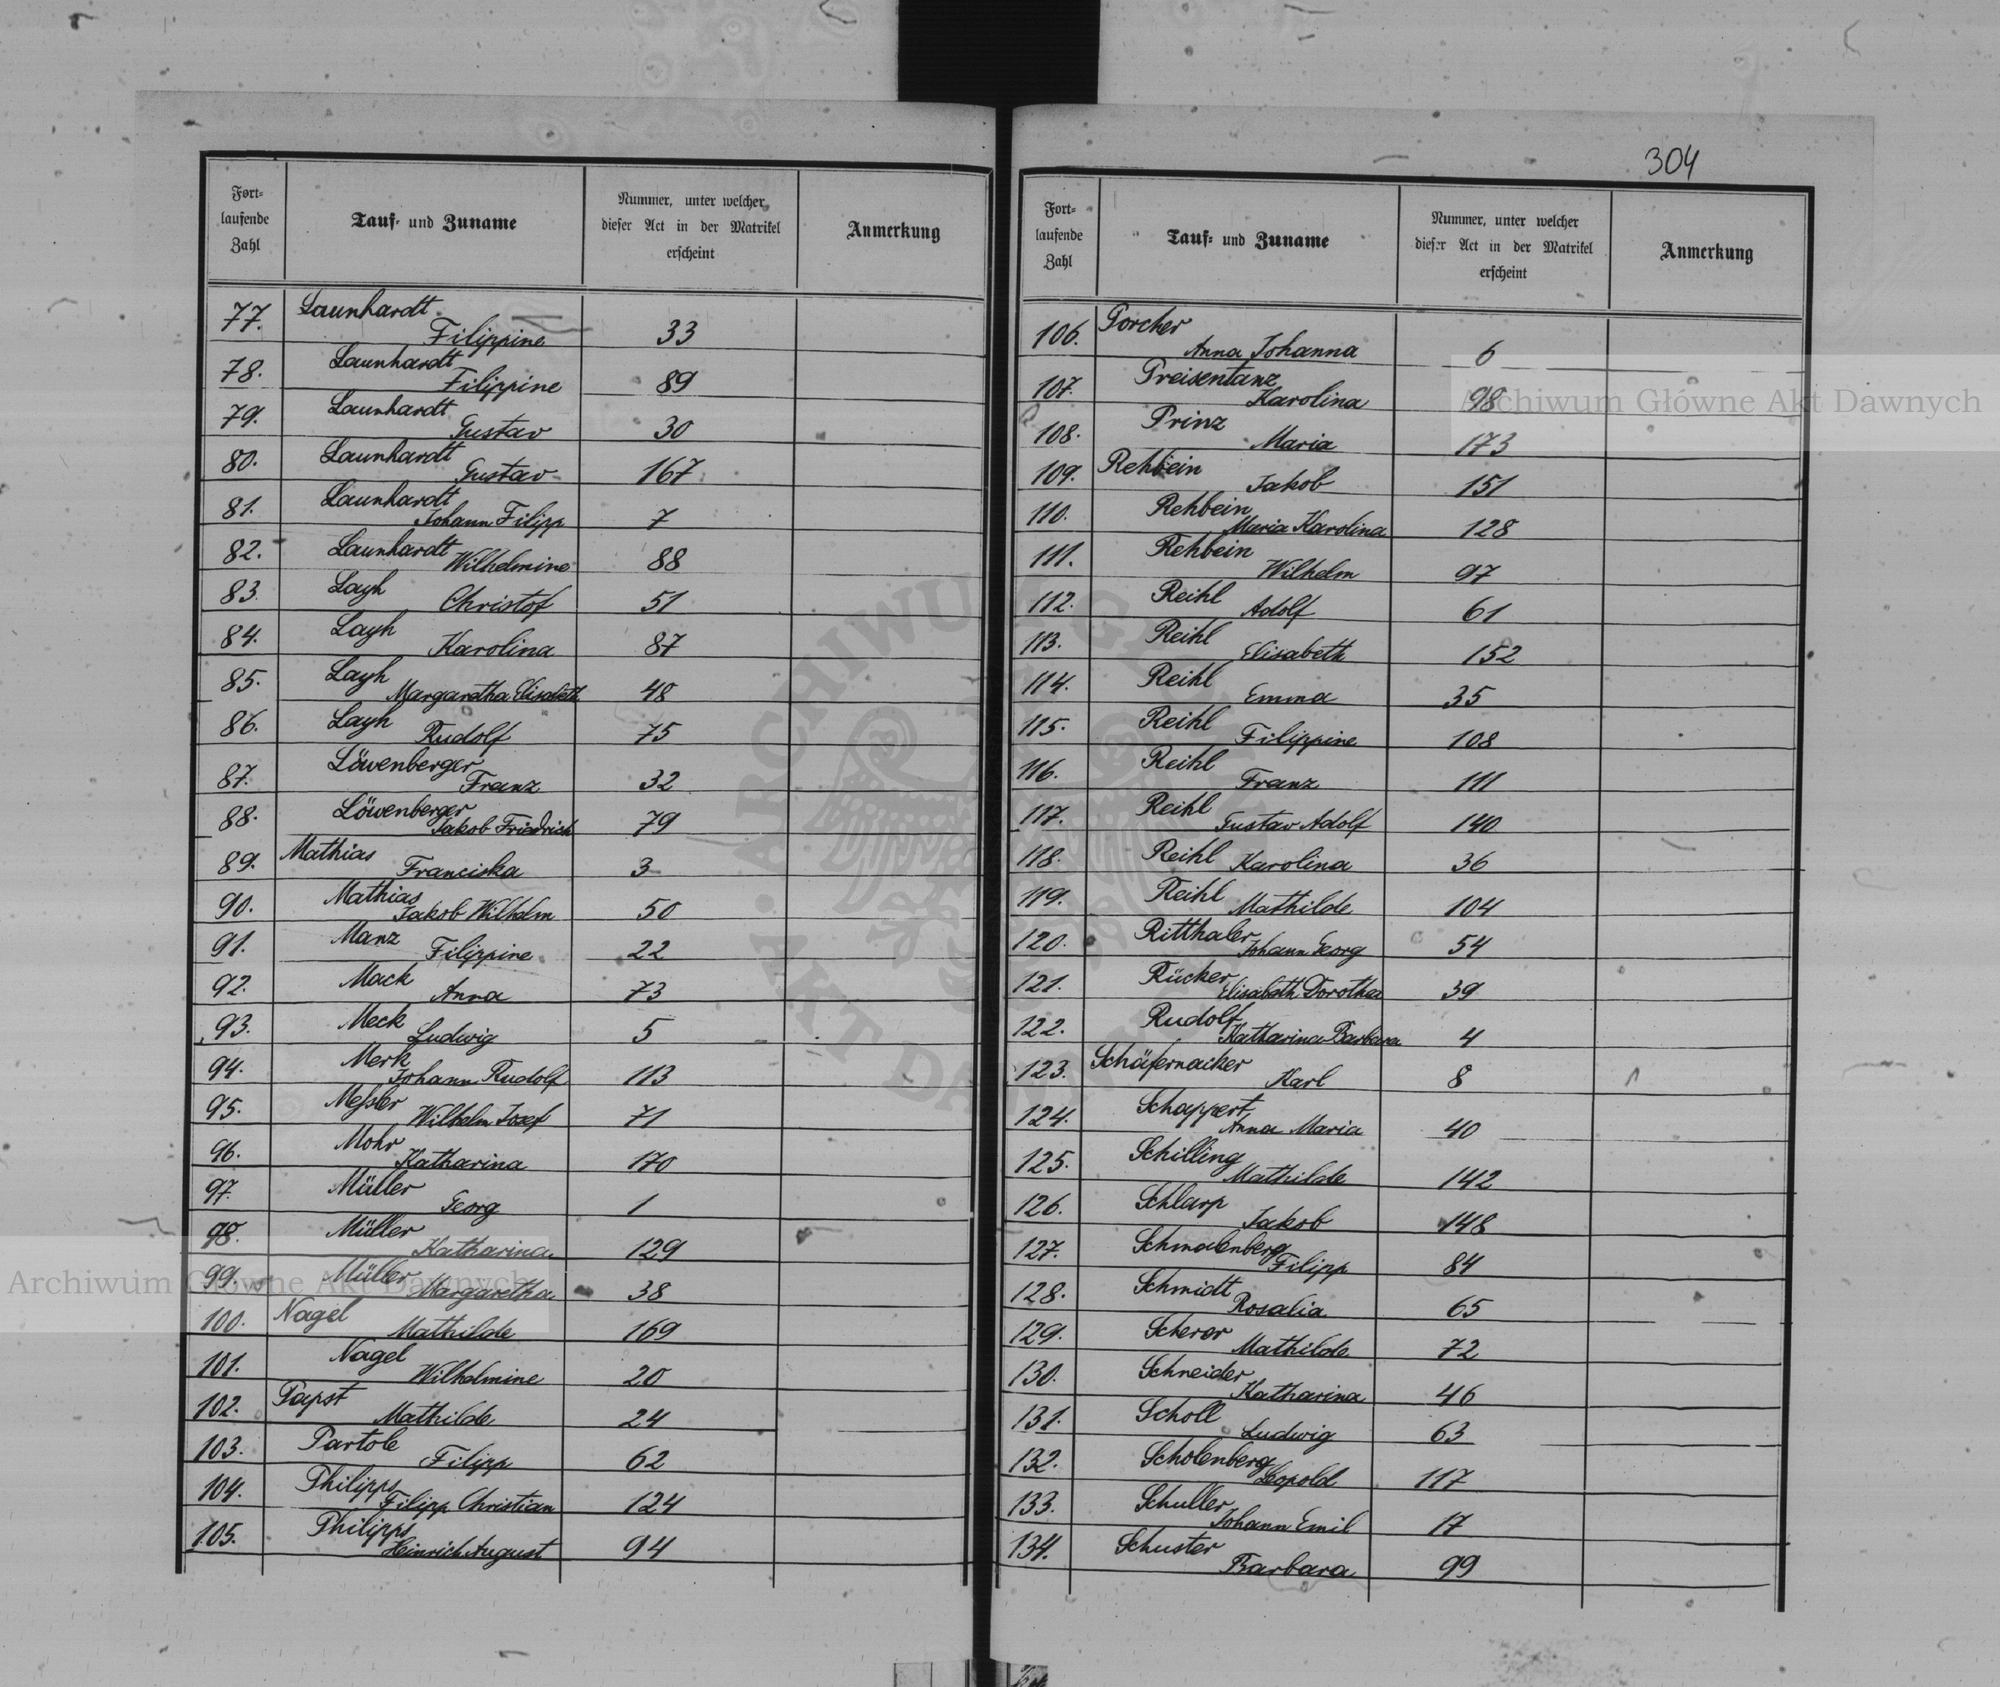 304
Fort-
laufende
Zahl
Tauf- und Zuname
Nummer, unter welcher
dieser Act in der Matrikel
erscheint
Anmerkung
77. Launhardt
Filippine 33
78. Launhardt
Filippine 89
79. Launhardt
Gustav 30
80. Launhardt
Gustav 167
81. Launhardt
Johann Filipp 7
82. Launhardt
Wilhelmine 88
83. Layh
Christof 51
84. Layh
Karolina 87
85. Layh
Margaretha Elisabeth 48
86. Layh
Rudolf 75
87. Löwenberger
Franz 32
88. Löwenberger
Jakob Friedrich 79
89. Mathias
Franciska 3
90. Mathias
Jakob Wilhelm 50
91. Manz
Filippine 22
92. Mack
Anna 73
93. Meck
Ludwig 5
94. Merk
Johann Rudolf 113
95. Meßler
Wilhelm Josef 71
96. Mohr
Katharina 170
97. Müller
Georg 1
98. Müller
Katharina 129
99. Müller
Margaretha 38
100. Nagel
Mathilde 169
101. Nagel
Wilhelmine 20
102. Papst
Mathilde 24
103. Partole
Filipp 62
104. Philipps
Filipp Christian 124
105. Philipps
Heinrich August 94
Fort-
laufende
Zahl
Tauf- und Zuname
Nummer, unter welcher
dieser Act in der Matrikel
erscheint
Anmerkung
106. Porcher
Anna Johanna 6
107. Preisentanz
Karolina 98
108. Prinz
Maria 173
109. Rehbein
Jakob 151
110. Rehbein
Maria Karolina 128
111. Rehbein
Wilhelm 97
112. Reihl
Adolf 61
113. Reihl
Elisabeth 152
114. Reihl
Emma 35
115. Reihl
Filippine 108
116. Reihl
Franz 111
117. Reihl
Gustav Adolf 140
118. Reihl
Karolina 36
119. Reihl
Mathilde 104
120. Ritthaler
Johann Georg 54
121. Rücker
Elisabeth Dorothea 39
122. Rudolf
Katharina Barbara 4
123. Schäfernacker
Karl 8
124. Schappert
Anna Maria 40
125. Schilling
Mathilde 142
126. Schlarp
Jakob 148
127. Schmalenberg
Filipp 84
128. Schmidt
Rosalia 65
129. Scherer
Mathilde 72
130. Schneider
Katharina 46
131. Scholl
Ludwig 63
132. Scholenberg
Leopold 117
133. Schuller
Johann Emil 17
134. Schuster
Barbara 99
Archiwum Główne Akt Dawnych
Archiwum Główne Akt Dawnych